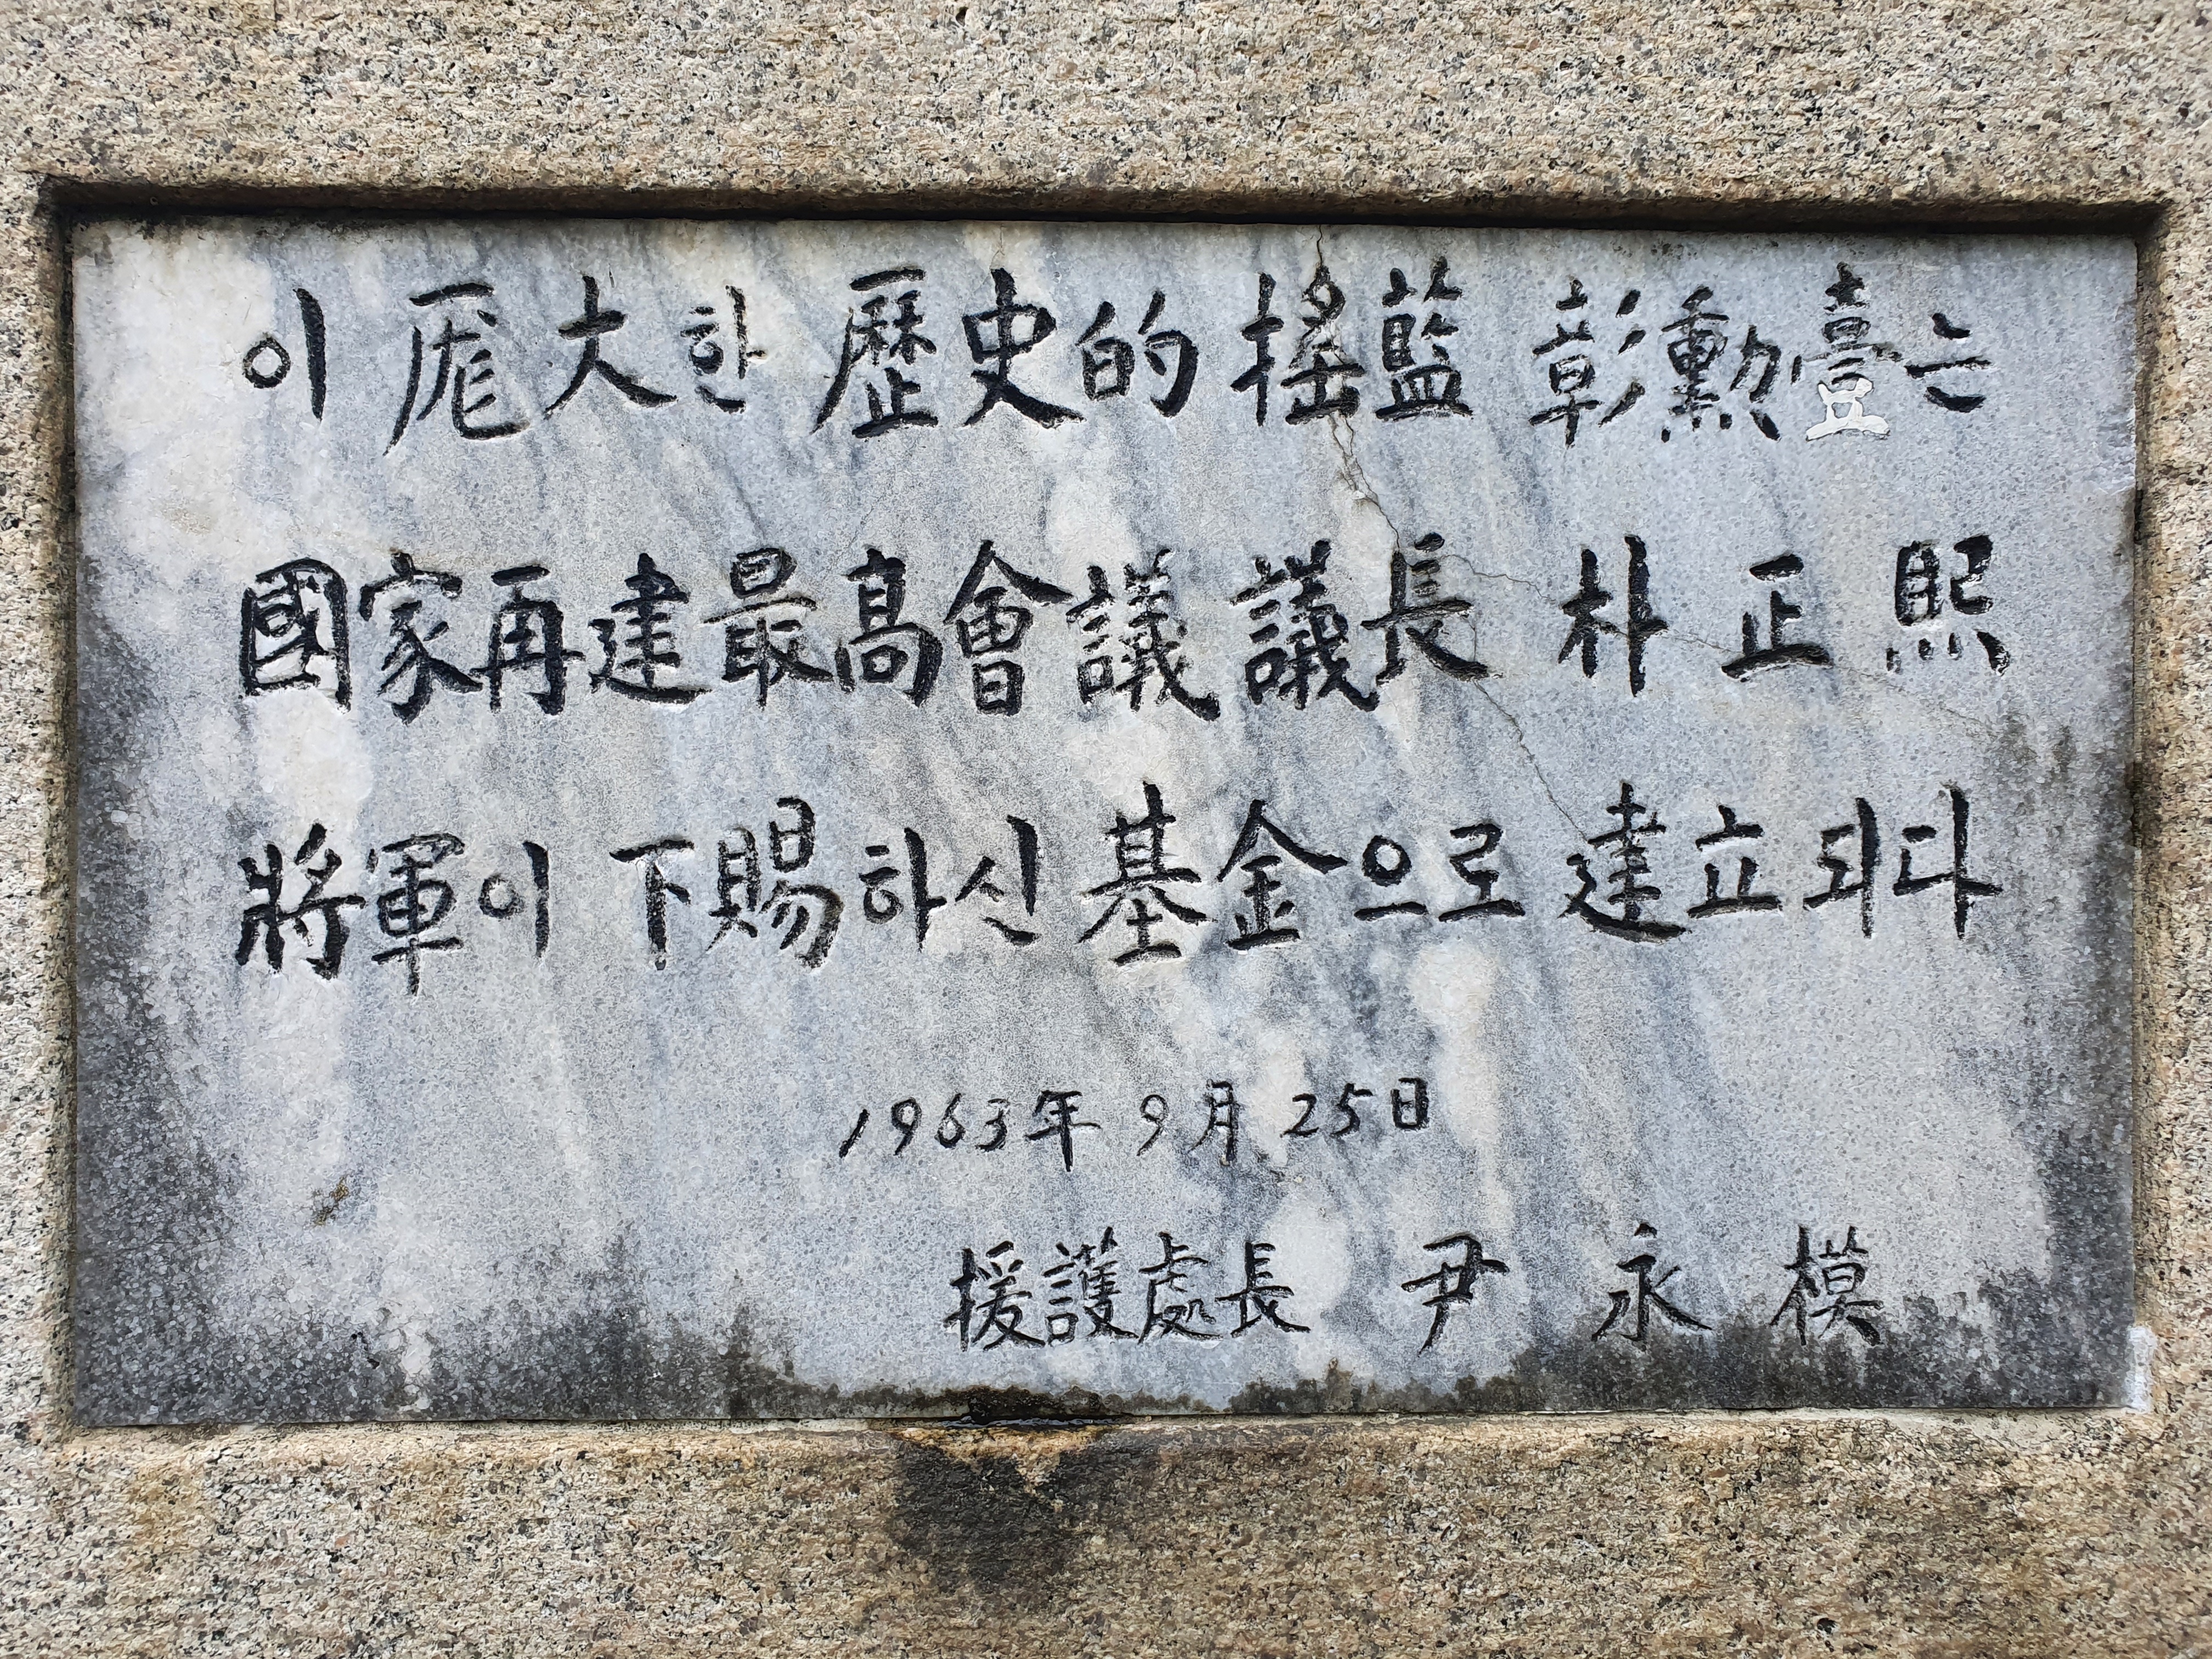 이 厖大한 歷史的 搖藍 彰勳臺는
國家再建最高會議 議長 朴 正 熙
將軍이 下賜하신 基金으로 建立되다
1963年 9月 25日
援護處長 尹 永 模